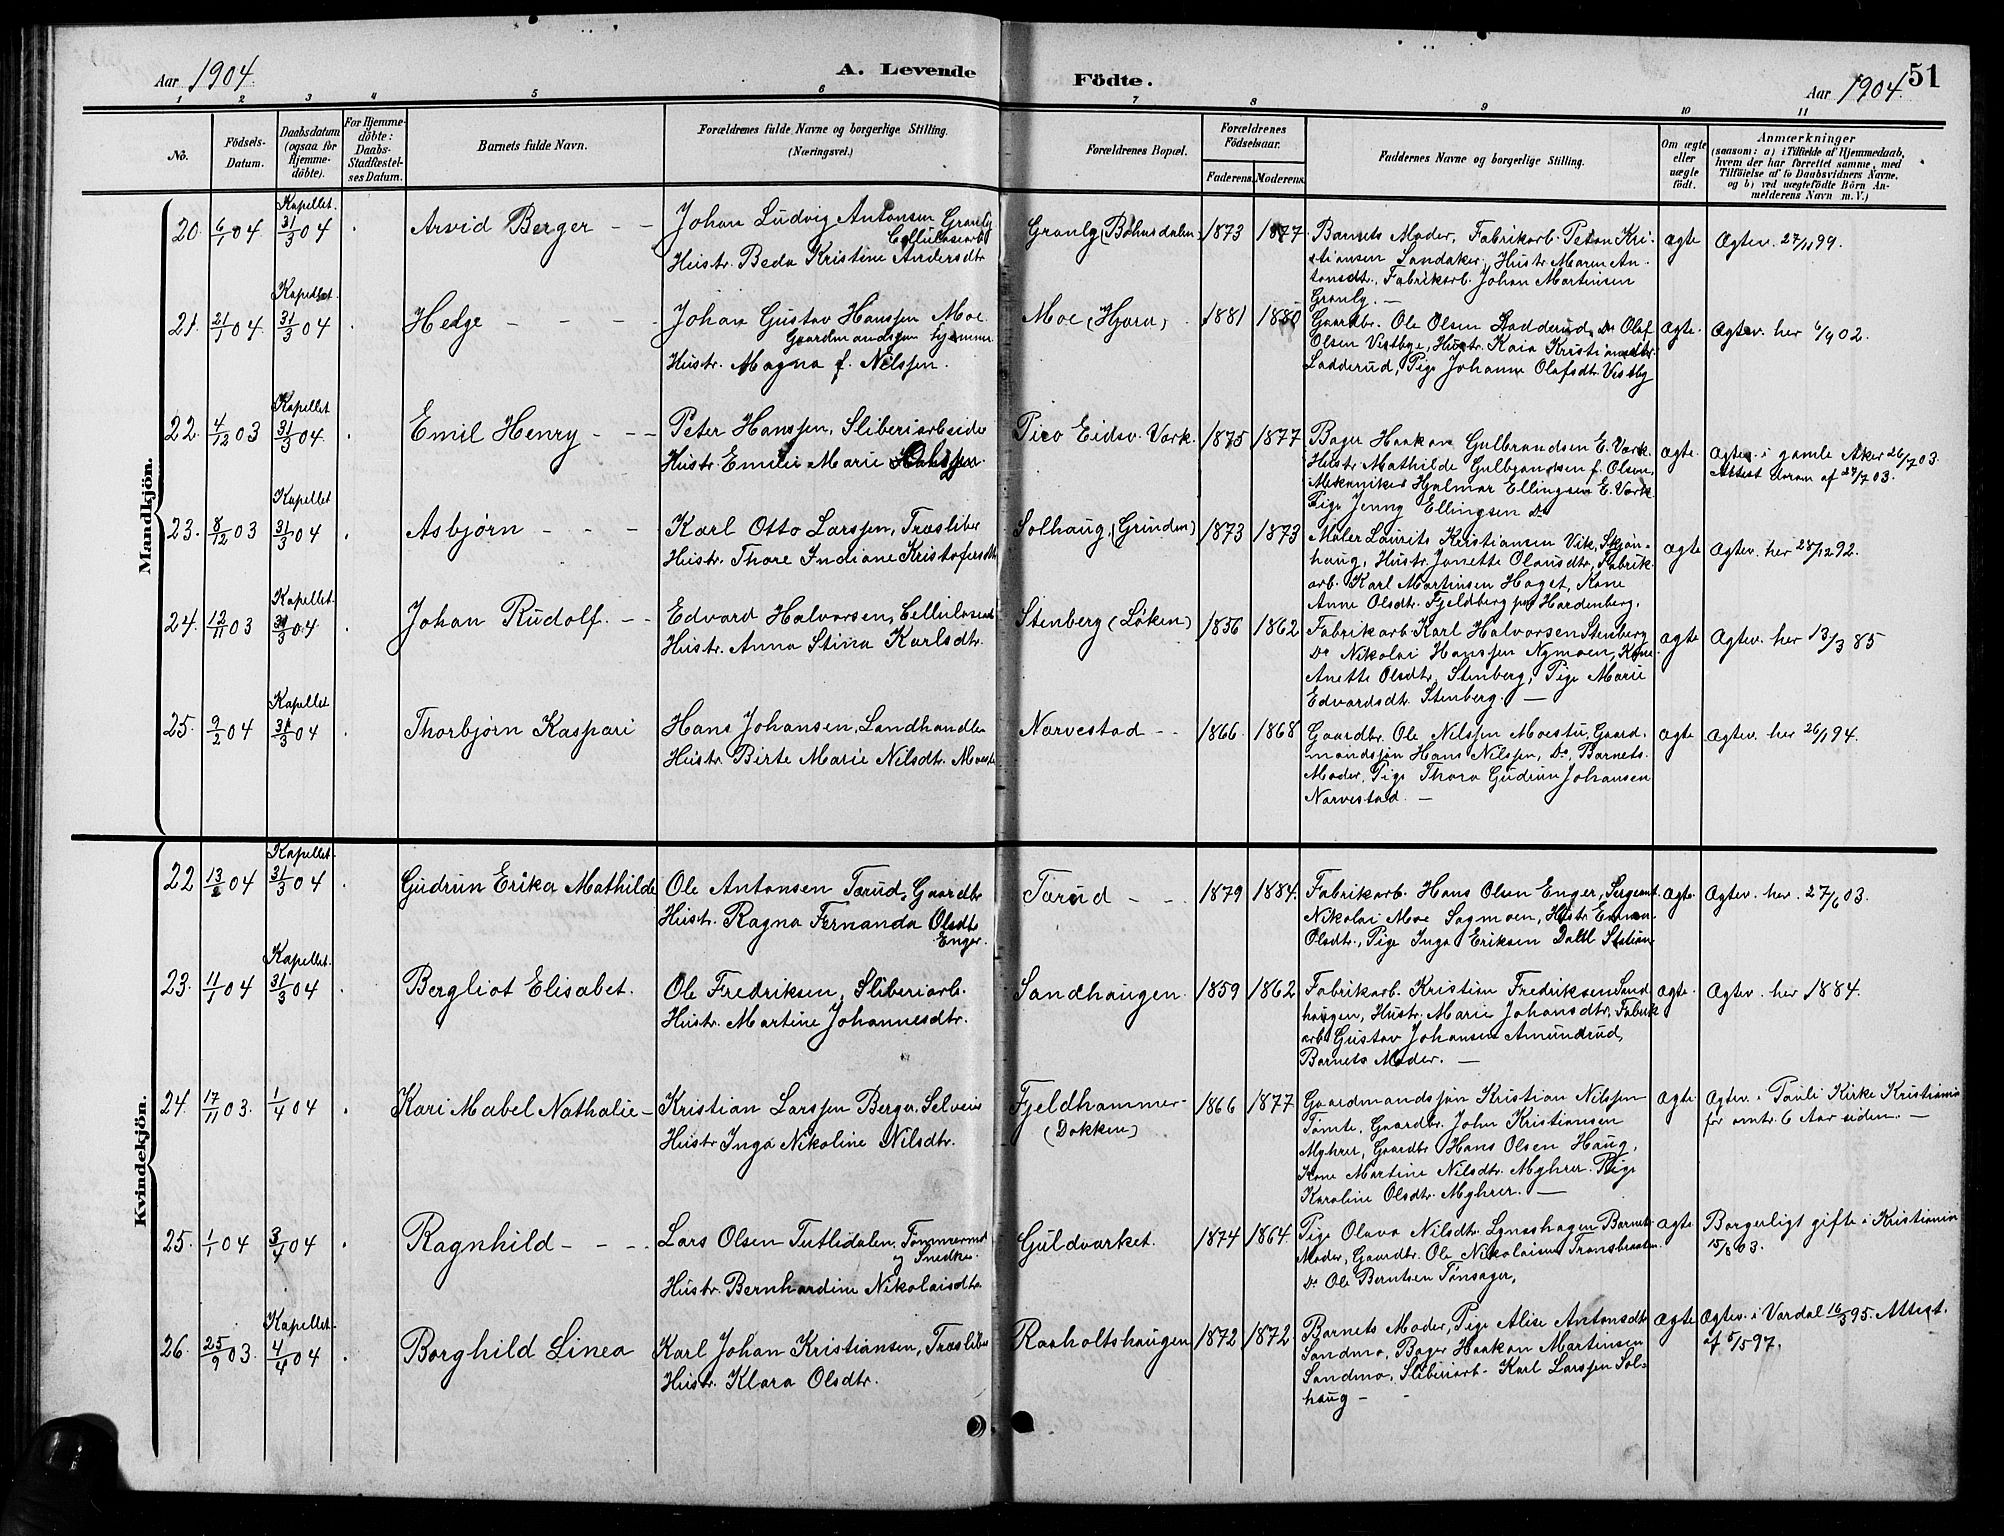 Aar 1904.
A. Levende Födte.
Aar 1904.
51
1 2 3 4 5 6 7 8 9 10 11
No.
Födsels-
Datum.
Daabsdatum
(ogsaa for
Hjemme-
döbte).
For Hjemme-
döbte:
Daabs-
Stadfæstel-
ses Datum.
Barnets fulde Navn.
Forældrenes fulde Navne og borgerlige Stilling.
(Næringsvei.)
Forældrenes Bopæl.
Forældrenes
Födselsaar.
Faderens. Moderens.
Faddernes Navne og borgerlige Stilling.
Om ægte
eller
uægte
födt.
Anmærkninger
(saasom: a) i Tilfælde af Hjemmedaab,
hvem der har forrettet samme, med
Tilföielse af to Daabsvidners Navne.
og b) ved uægtefödte Börn An-
melderens Navn m. V.)
Mandkjön.
20. 6/1 04. Kapellet. 31/3 04 Arvid Berger - -
Johan Ludvig Antonsen Granly
Cellulosearb.
Hustr. Beda Kristine Andersdtr
Granly (Bøhnsdalen) 1873 1877
Barnets Moder, Fabrikarb. Petan Kri-
stiansen Sandaker, Hustr Maren An-
tonsdt., Fabrikarb. Johan Martinsen
Granly. —
ægte Ægtev. 27/11 99.
21. 21/1 04. Kapellet. 31/3 04 Helge - - -
Johan Gustav Hanssen Moe.
Gaardmandssøn hjemme.
Hustr. Magna f. Nilssen.
Moe (Hjera) 1881 1880
Gaardbr. Ole Olsen Ladderud, Do Olaf
Olsen Vestbye, Hustr. Kaia Kristiansdtr.
Ladderud, Pige Johanne Olafsdtr. Vestby
ægte. Ægtev. her 6/9 02.
22. 4/12 03 Kapellet 31/3 04. Emil Henry - - -
Peter Hanssen, Sliberiarbeider
Hustr. Emilie Marie
Pico Eidsv. Værk. 1875 1877
Bager Haakon Gulbrandsen E. Værk
Hustr. Mathilde Gulbrandsen f. Olsen,
Mekaniker Hjalmar Ellingsen E. Værk
Pige Jenny Ellingsen Do
ægte. Ægtev. i gamle Aker 26/7 03.
Attest derom af 27/7 03.
23. 8/12 03 Kapellet 31/3 04 Asbjørn - - -
Karl Otto Larssen, Træsliber
Hustr. Thore Indiane Kristofersdtr
Solhaug, (Grinden) 1873 1873
Maler Laurits Kristiansen Vik, Skjøn-
haug, Hustr. Janette Olausdtr, Fabrik-
arb. Karl Martinsen Haget, Kone
Anne Olsdtr. Fjeldberg paa Hardenberg.
ægte Ægtev. her 28/12 92.
24. 12/11 03 Kapellet. 31/3 04. Johan Rudolf. - -
Edvard Halvorsen, Cellulosearb
Hustr. Anna Stina Karlsdtr.
Stenberg (Løken) 1856 1862
Fabrikarb. Karl Halvorsen Stenberg
Do Nikolai Hanssen Nymoen, Kone
Anette Olsdtr, Stenberg, Pige Marie
Edvardsdt. Stenberg. —
ægte Ægtev. her 13/3 85
25. 9/2 04 Kapellet 31/3 04 Thorbjørn Kaspari
Hans Johansen, Landhandler
Hustr. Birte Marie Nilsdtr.
Nærvestad - - 1866. 1868
Gaardbr. Ole Nilssen Moestu, Gaard-
mandssøn Hans Nilssen, Do, Barnets
Moder, Pige Thora Gudrun Johansen
Nærvestad. —
ægte Ægtev. her 26/1 94.
Kvindekjön.
22 13/2 04 Kapellet 31/3 04 Gudrun Erika Mathilde
Ole Antonsen Tærud, Gaardbr
Hustr. Ragna Fernanda Olsdtr
Enger.
Tærud - - . 1879 1884.
Fabrikarb. Hans Olsen Enger, Sergeant
Nikolai Moe Sagmoen, Hustr Emma
Olsdtr., Pige Inga Eriksen Dahl Station
ægte. Ægtev. her. 27/6 03.
23. 11/1 04 Kapellet. 31/3 04 Bergliot Elisabet.
Ole Fredriksen, Sliberiarb.
Hustr. Martine Johannesdtr.
Sandhaugen. 1859 1862
Fabrikarb. Kristian Fredriksen Sand
haugen, Hustr. Marie Johansdtr, Fabrik
arb. Gustav Johansen Amundrud,
Barnets Moder. —
ægte. Ægtev. her 1884.
24. 17/11 03. 1/4 04 Kari Mabel Nathalie -
Kristian Larssen Berger, Selveier
Hustr Inga Nikoline Nilsdtr.
Fjeldhammer-
(Dokken)
1866 1877
Gaardmandssøn Kristian Nilssen
Tømte, Gaardbr. John Kristiansen
Myhrer, Gaardbr Hans Olsen Haug,
Kone Martine Nilsdtr. Myhrer. Pige
Karoline Olsdtr. Myhrer. —
ægte Ægtev. i Pauli Kirke Kristiania
for omtr. 6 Aar siden. —
25. 1/1 04 3/4 04 Ragnhild - - -
Lars Olsen Tutlidalen, Tømmermd
og Snedker
Hustr. Bernhardine Nikolaisdtr
Guldværket. 1874 1864.
Pige Olava Nilsdtr. Lynsshagen Barnets
Moder, Gaardbr. Ole Nikolaisen Transbraaten.
Do Ole Berntsen Tønsager,
ægte Borgerligt gifte i Kristiania
15/8 03.
26. 25/9 03. Kapellet 4/4 04 Borghild Linea
Karl Johan Kristiansen, Træsliber
Hustr. Klara Olsdtr.
Raaholtshaugen 1872 1872
Barnets Moder, Pige Alise Antonsdtr
Sandmo, Bager Haakon Martinsen
Sandmo, Sliberiarb. Karl Larssen Sol-
haug - -
ægte Ægtev. i Vardal 16/3 95. Attest
af 5/5 97.